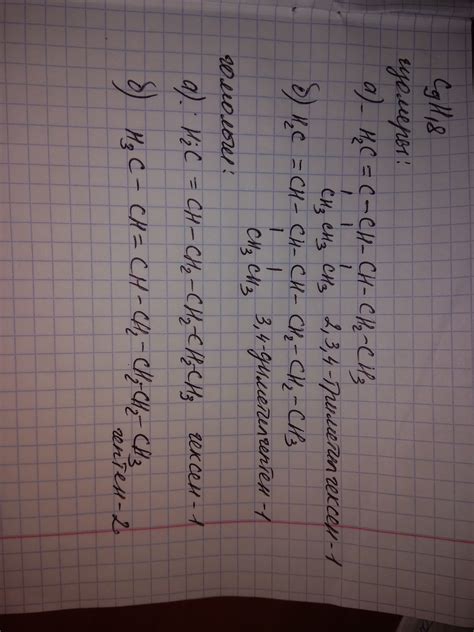 C9H18
изомеры:
а) - H2C = C - CH - CH - CH2 - CH3
CH3 CH3 CH3 2,3,4-триметилгексен-1
б) H2C = CH - CH - CH - CH2 - CH2 - CH3
CH3 CH3 3,4-диметилгептен-1
гомологи:
а). H2C = CH - CH2 - CH2 - CH2 CH3 гексен-1
б) H3C - CH = CH - CH2 - CH2 - CH2 - CH3
гептен-2.